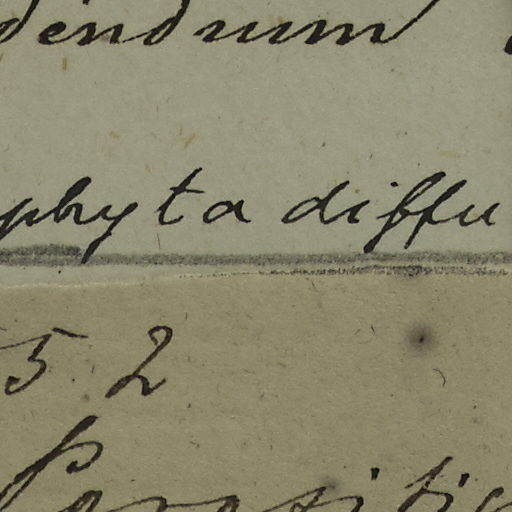 dendrum
phyta diffu
52
Parasitic